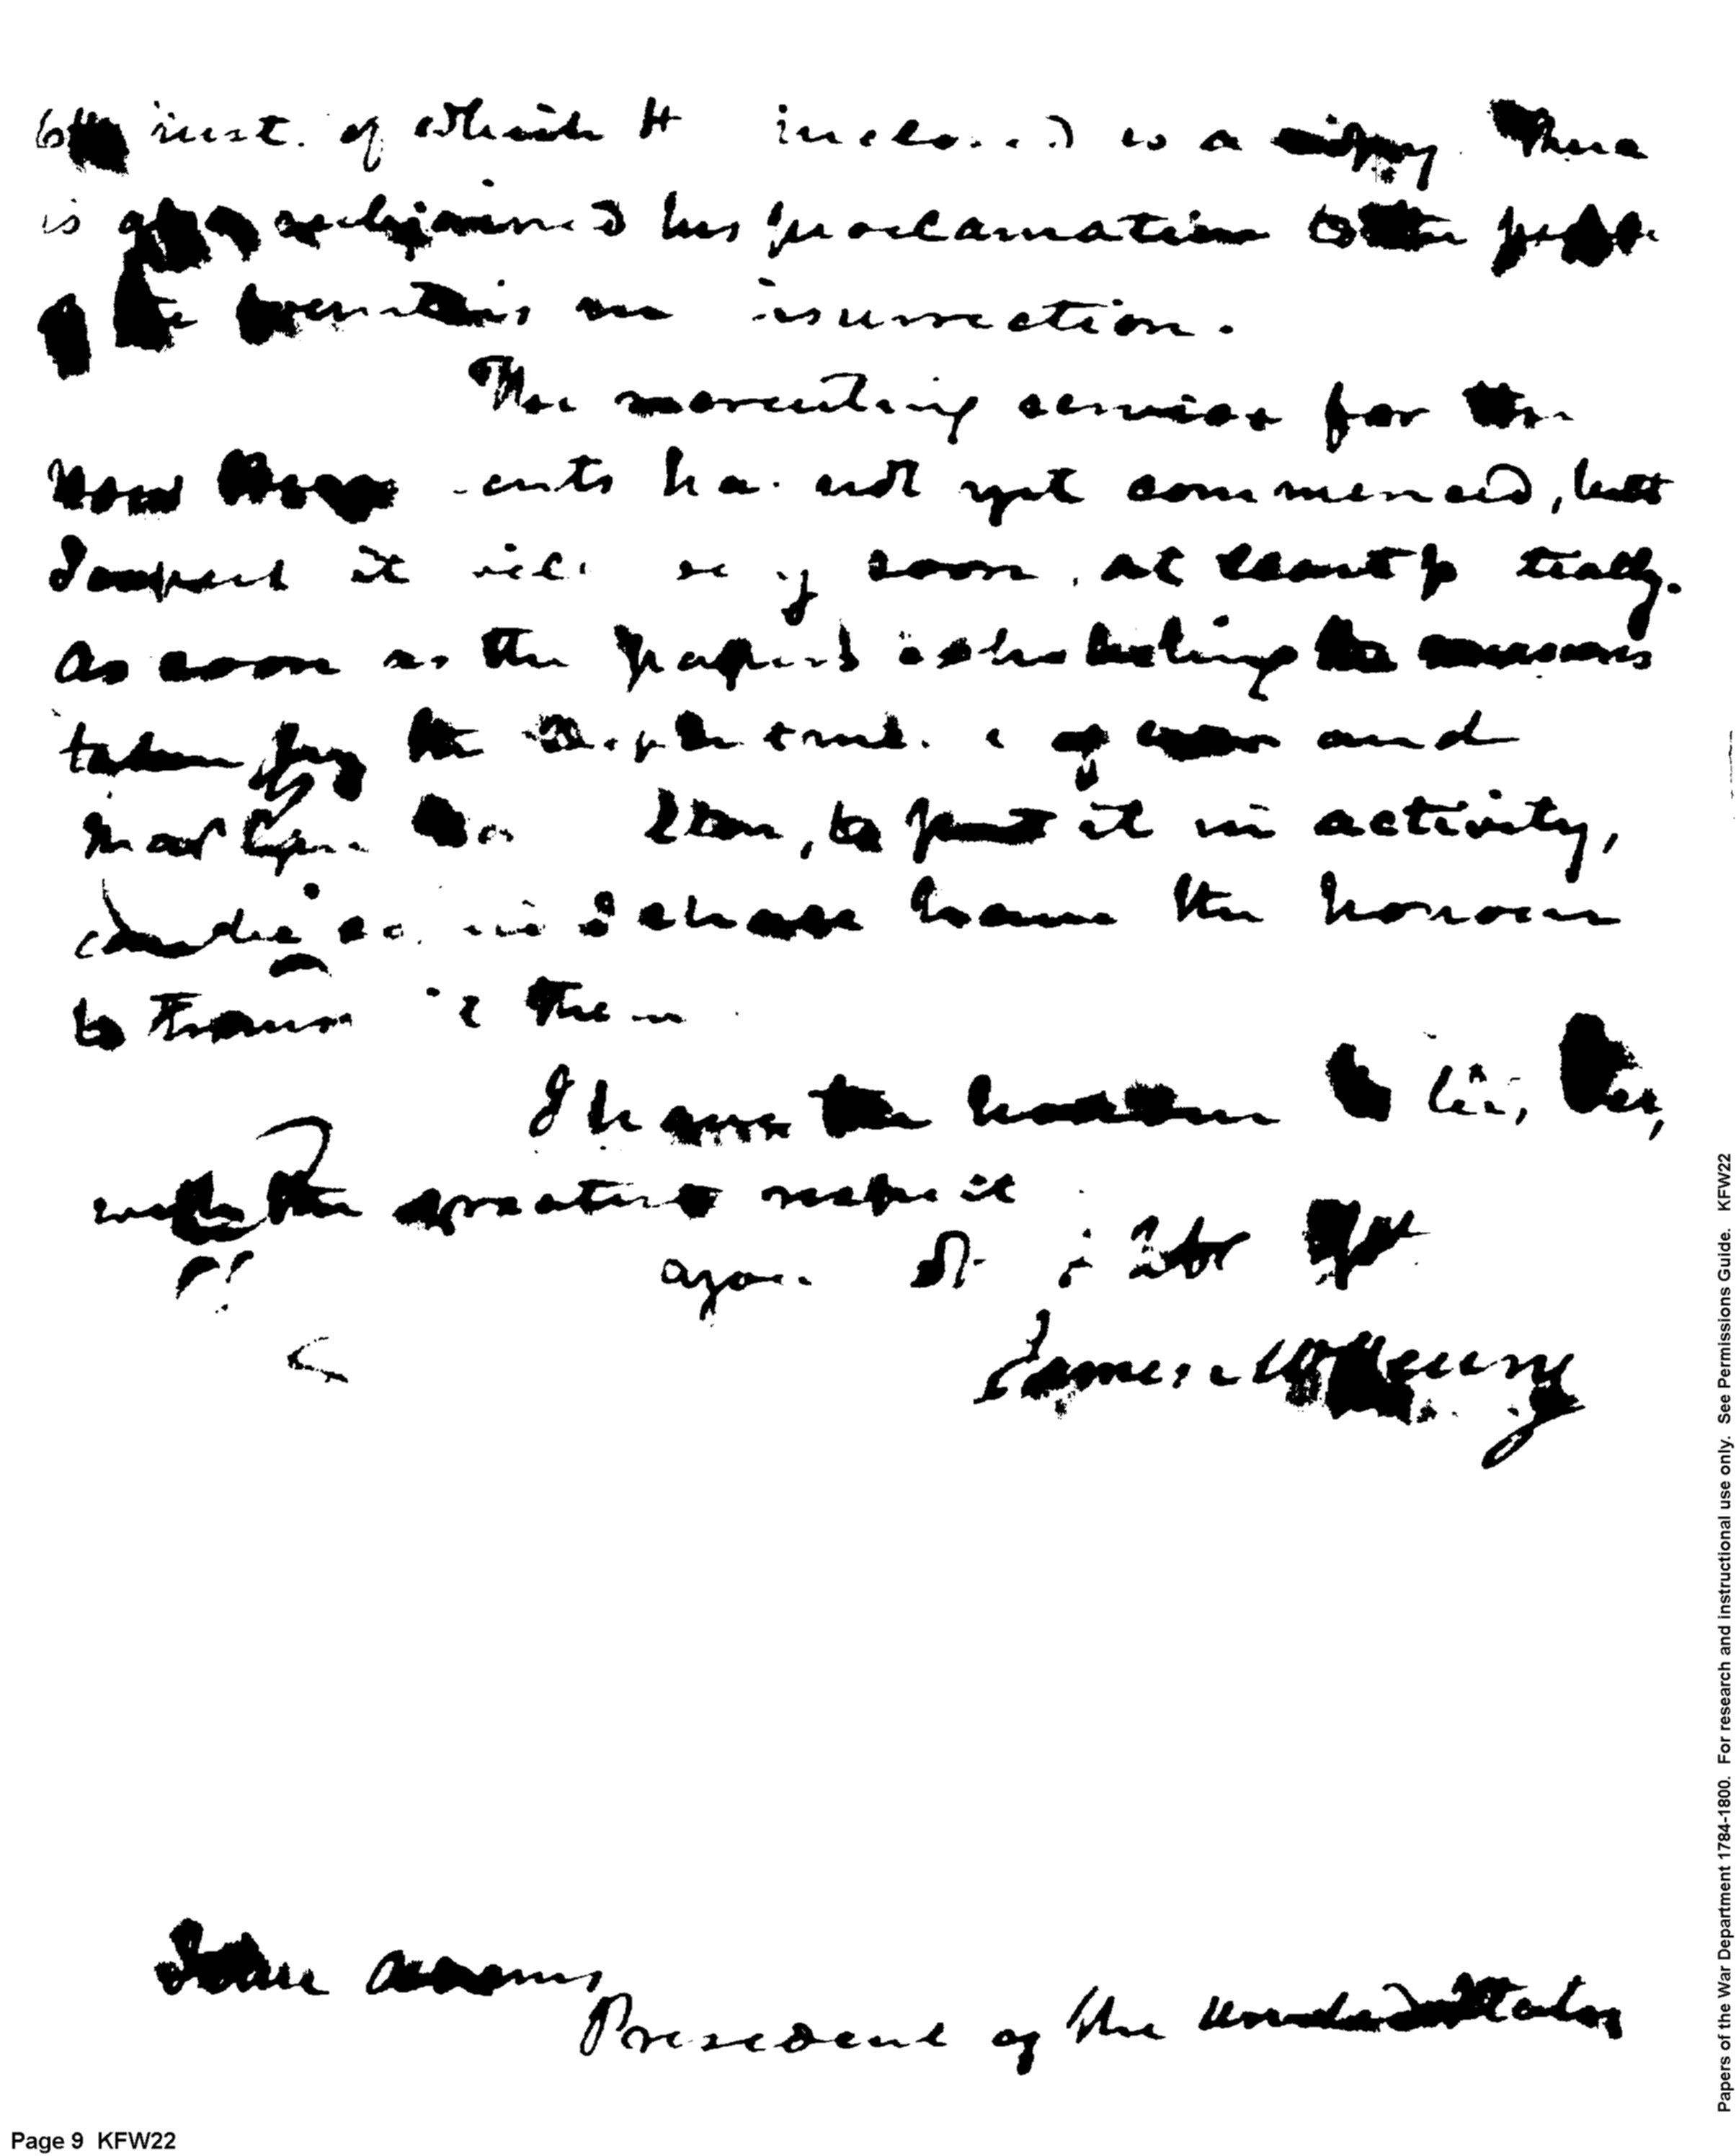 inst. of which the inclosed is a copy. There
is also subjoined his proclamation to the people
of the counties in insurrection.
The recruiting service for the
new Regiments has not yet commenced, but
I expect it will very soon, at least partially.
As soon as the papers exhibiting the measures
taken by the and
Major Gen. to put it in activity,
I shall have the honour
to them
I have the honour to be, Sir,
with the greatest respect
your Ob
James McHenry
John Adams
President of the United States
Papers of the War Department 1784-1800. For research and instructional use only. See Permissions Guide. KFW22
Page 9 KFW22